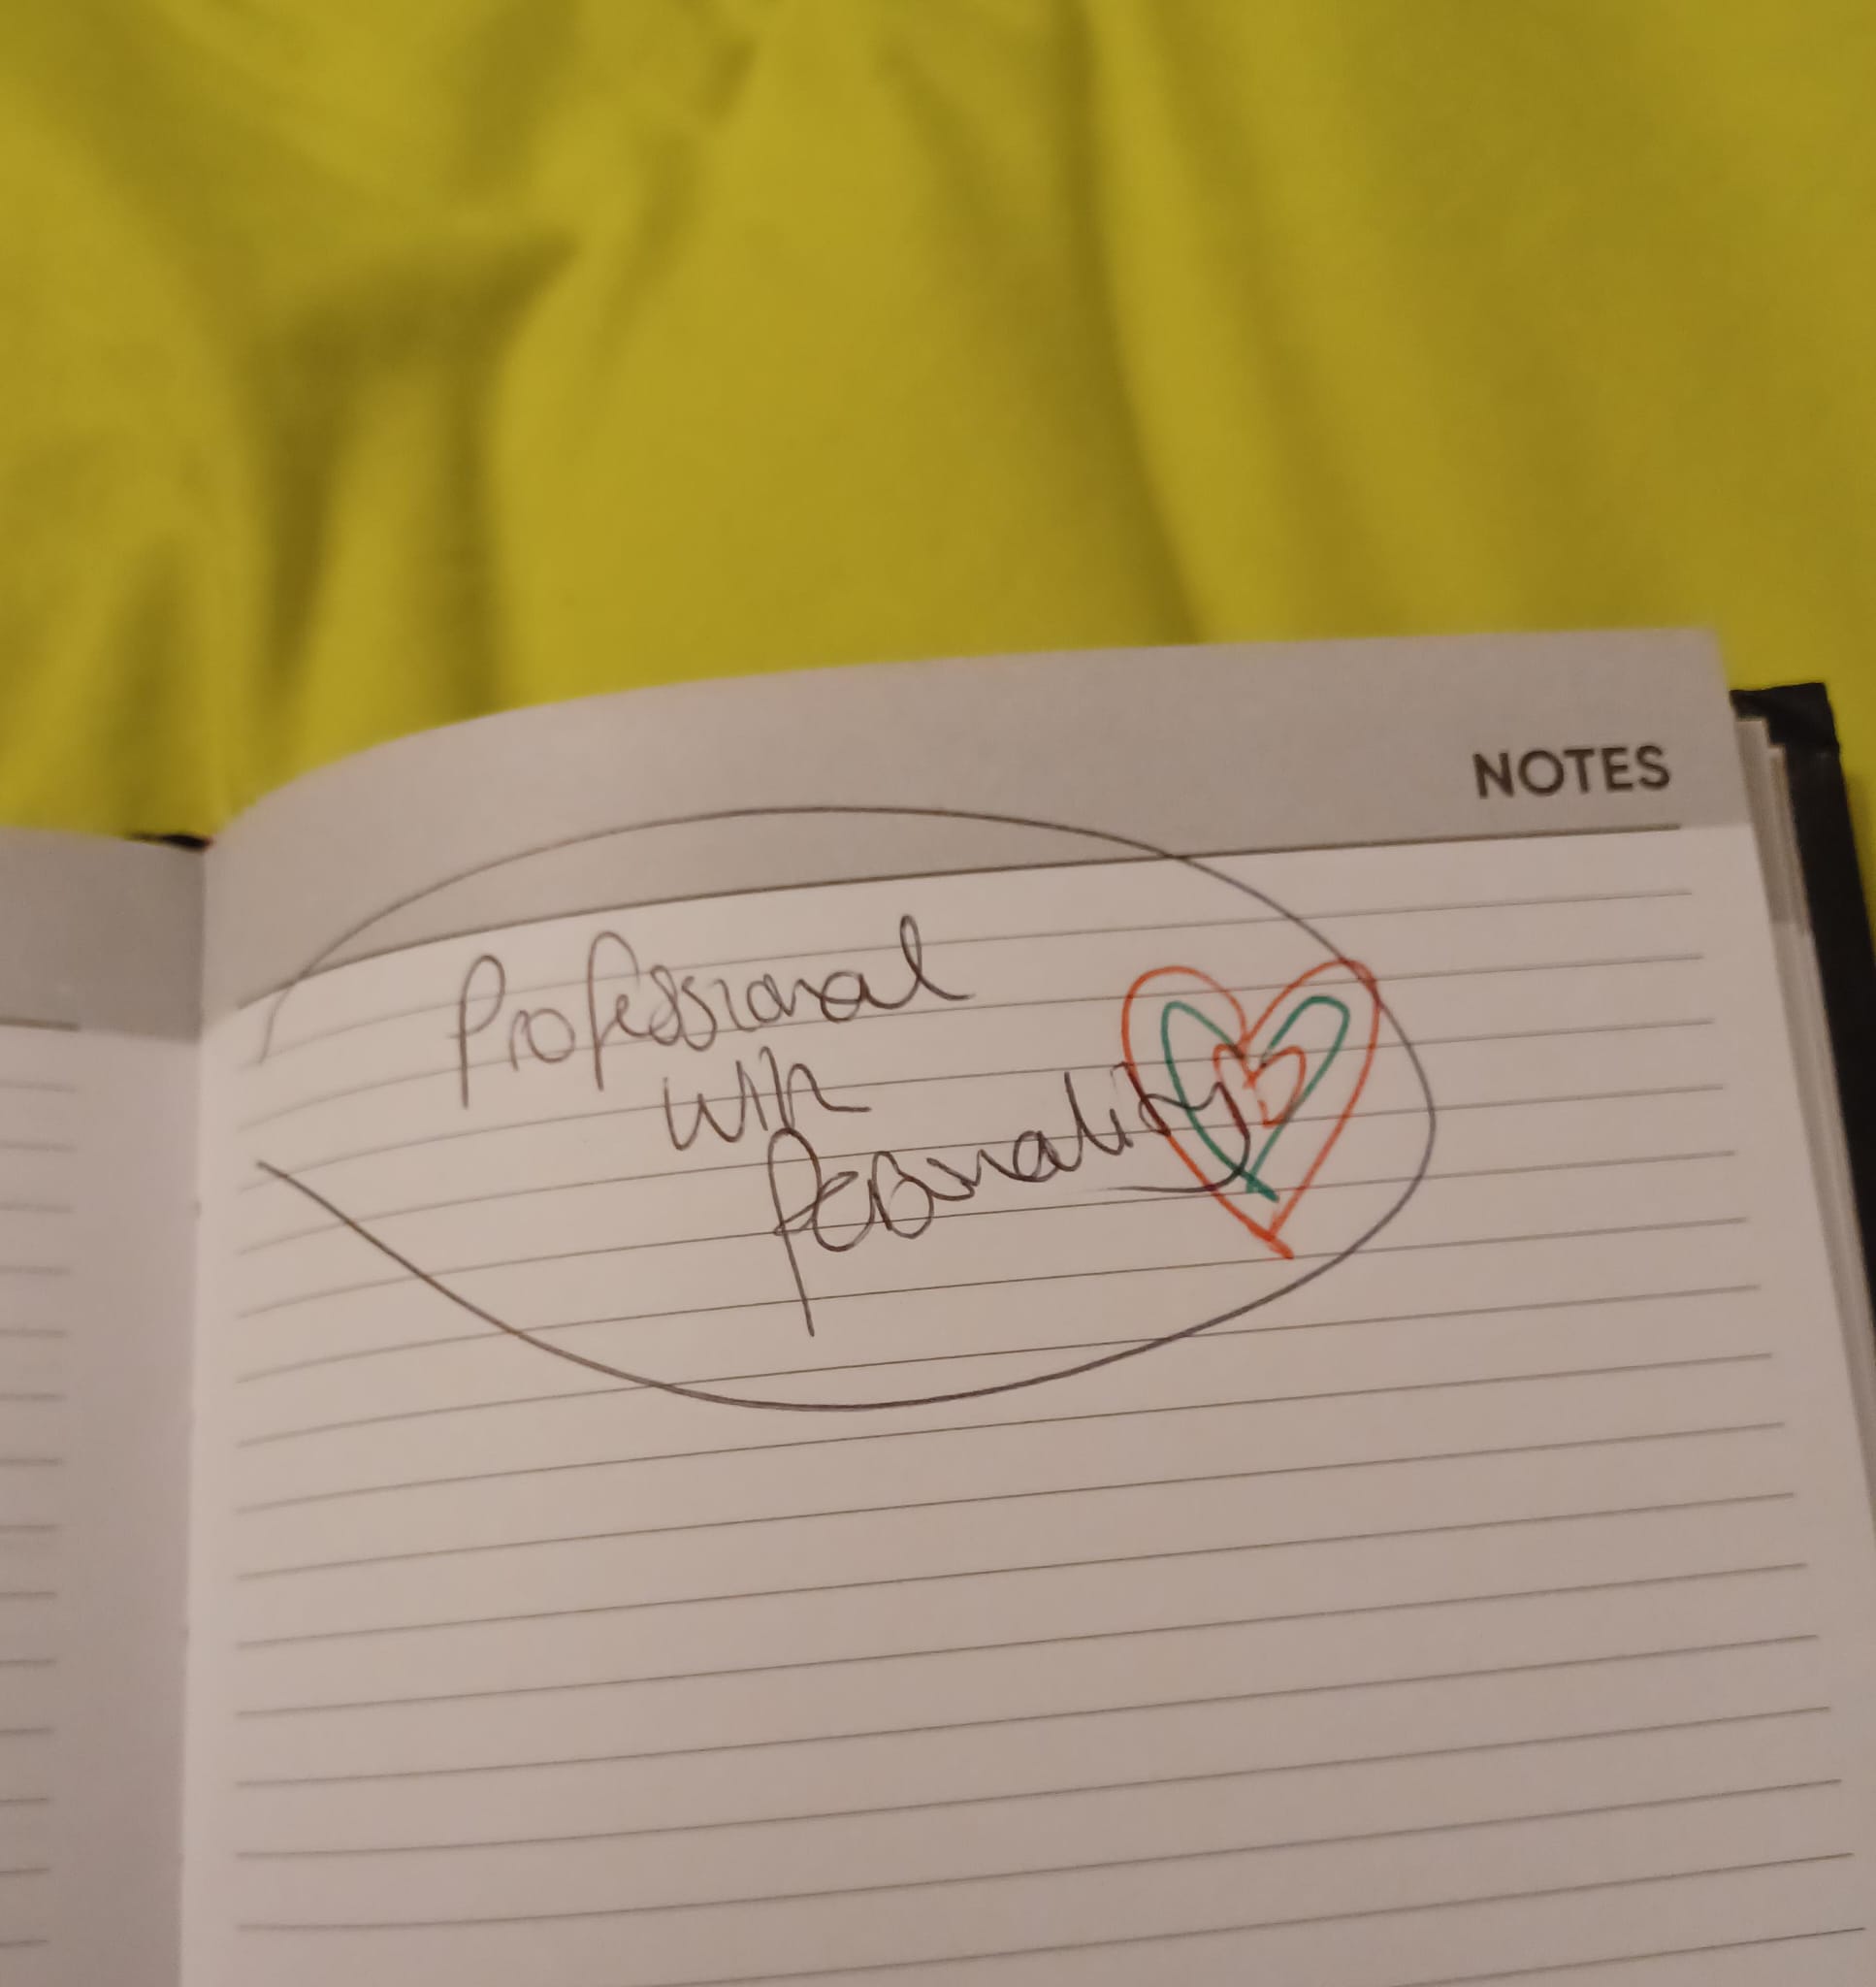 NOTES
Professional
with
Personality